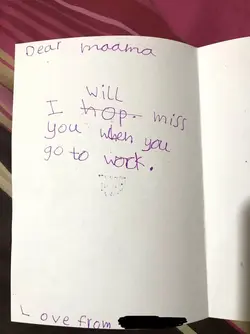 Dear maama
will
I hop. miss
you when you
go to work.
Love from